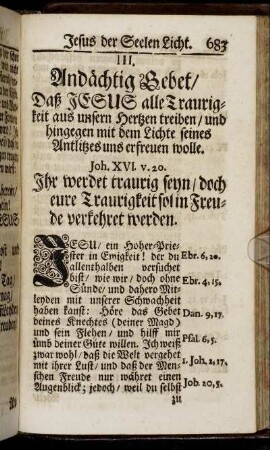 Jesus der Seelen Licht. 683
III.
Andächtig Gebet/
Daß JESUS alle Traurig-
keit aus unsern Hertzen treiben/ und
hingegen mit dem Lichte seines
Antlitzes uns erfreuen wolle.
Joh. XVI. v. 20.
Ihr werdet traurig seyn/ doch
eure Traurigkeit sol in Freu-
de verkehret werden.
JESU/ ein Hoher-Prie-
ster in Ewigkeit! der du Ebr. 6, 20.
allenthalben versuchet
bist/ wie wir/ doch ohne Ebr. 4, 15.
Sünde/ und dahero Mit-
leyden mit unserer Schwachheit
haben kanst: Höre das Gebet Dan. 9, 17.
deines Knechtes (deiner Magd)
und sein Flehen/ und hilff mir Psal. 6, 5.
ümb deiner Güte willen. Ich weiß
zwar wohl/ daß die Welt vergehet 1. Joh. 2, 17.
mit ihrer Lust/ und daß der Men-
schen Freude nur währet einen Job. 20, 5.
Augenblick; jedoch/ weil du selbst
zu